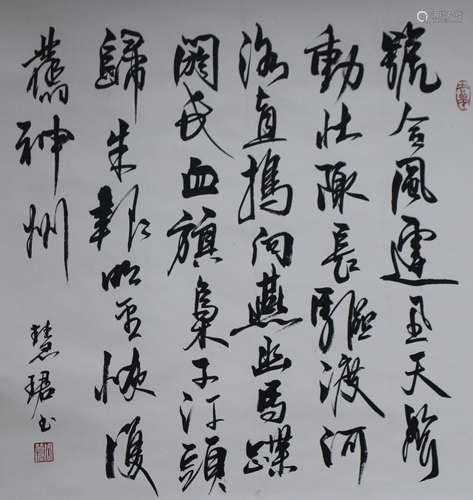 號令風霆迅天聲
動北陬長驅渡河
洛直搗向燕幽馬蹀
閼氏血旗梟可汗頭
歸來報明主恢復
舊神州
慧珺書